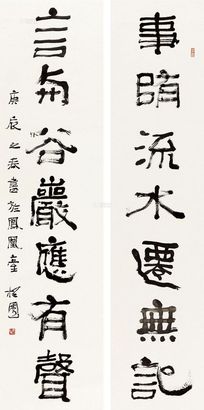 事隨流水遷無記
言與谷巖應有聲
庚辰之 書於鳳凰臺